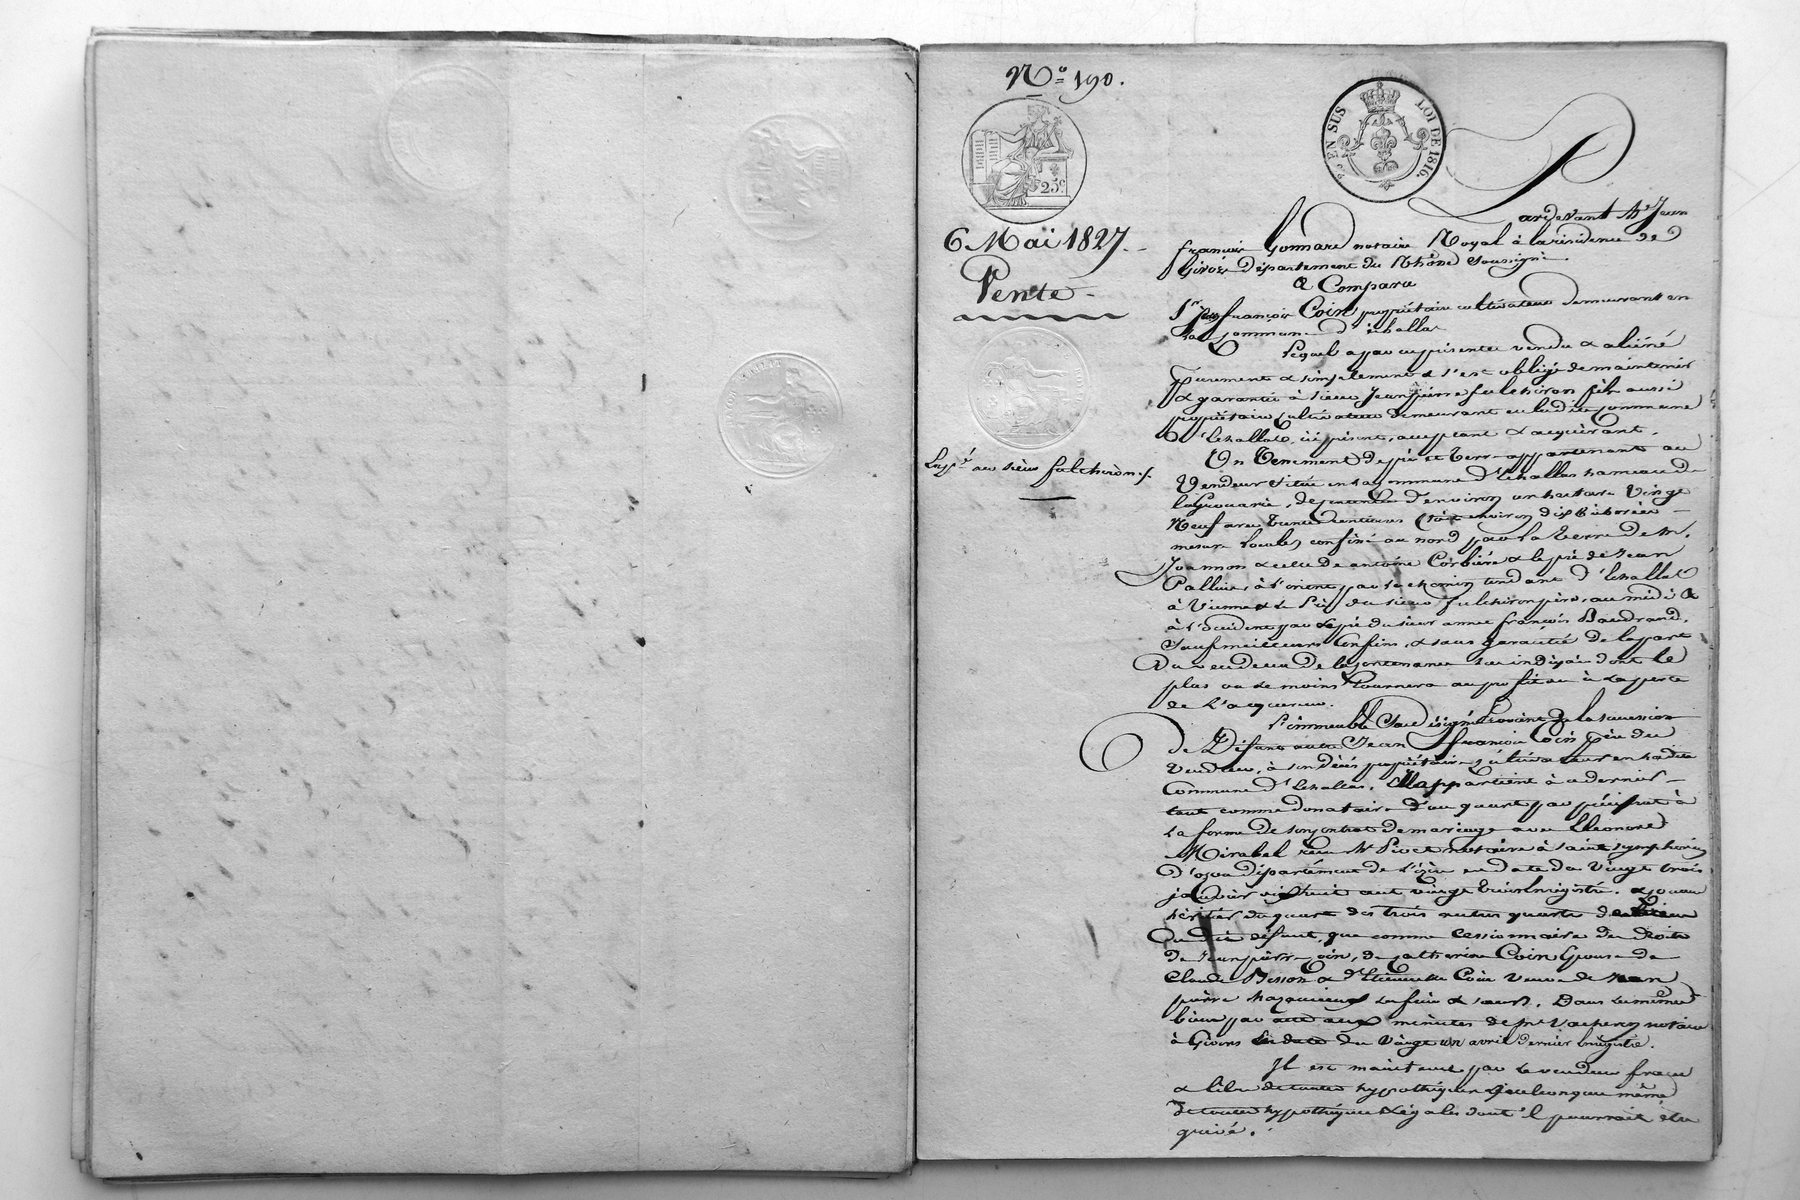 N.º 190.
25c
EN SUS
LOI DE 1816.
6 Mai 1827.
Vente
Exp.é au sieur fulchiron f.
Pardevant Me Jean
françois Gonnard notaire Royal à la residence de
Givors département du Rhône Soussigné.
A Comparu
Sr françois Coin propriétaire cultivateur demeurant en
la commune d'échallas
Lequel a par ces présentes vendu & aliéné
purement & simplement & s'est obligé de maintenir
& garantir à sieur Jean pierre fulchiron fils aussi
propriétaire cultivateur demeurant en ladite commune
d'Echallas, ici présent, acceptant & acquérant.
Un tenement de pré et terre appartenant au
Vendeur situé en la commune d'Echallas hameau de
, de contenu d'environ un hectare Vingt
Neuf ares trente centiares (soit environ dix bicherées
mesure locale) confiné au nord par la terre de M.
Joannon & celle de antoine Corbière & le pré de Jean
Pallier, à l'orient par le chemin tendant d'Echallas
à Vienne & le Pré du sieur fulchiron père, au midi &
à l'occident par le pré du sieur anne françois Baudrand,
Sauf meilleurs confins, & sans garantie de la part
Du vendeur de la contenance sus indiquée dont le
plus ou le moins tournera au profit ou à la perte
de l'acquéreur.
L'immeuble provient de la succession
de Défunt autre Jean françois Coin père du
Vendeur, à son décès propriétaire cultivateur en ladite
Commune d'Echallas. Il appartient à ce dernier
tant comme donataire d'un quart par préciput à
la forme de son contrat de mariage avec Eléonore
Mirabel reçu Me notaire à saint symphorien
D'ozon département de l'isère en date du Vingt trois
janvier dix huit cent vingt trois enregistré, & comme
héritier du quart des trois autres quarts
Du dit défunt, que comme Cessionnaire des droits
de Jean pierre Coin, de Catherine Coin Epouse de
Claude Besson & d'Etiennette Coin Veuve de Jean
pierre ses frère & sœurs. Dans les mêmes
biens par acte aux minutes de Me Vacheron notaire
à Givors en date du Vingt un avril dernier enregistré.
Il est maintenu par le vendeur franc
& libre de toutes hypothèques quelconques même
de toutes hypothèques légales dont il pourrait être
grevé.